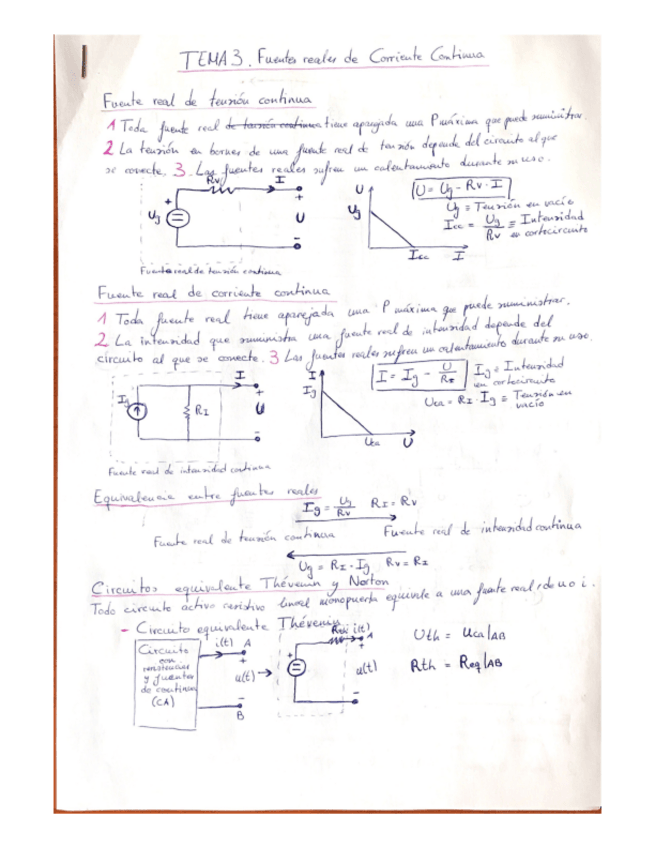 TEMA 3. Fuentes reales de Corriente Continua
Fuente real de tensión continua
1 Toda fuente real de tensión continua tiene aparejada una P máxima que puede suministrar.
2 La tensión en bornes de una fuente real de tensión depende del circuito al que
se conecte. 3. Las fuentes reales sufren un calentamiento durante su uso.
Rv I
+ Ug -
+ U -
U
Ug
Icc I
U = Ug - Rv · I
Ug ≡ Tensión en vacío
Icc = Ug/Rv ≡ Intensidad
en cortocircuito
Fuente real de tensión continua
Fuente real de corriente continua
1 Toda fuente real tiene aparejada una P máxima que puede suministrar.
2 La intensidad que suministra una fuente real de intensidad depende del
circuito al que se conecte. 3 Las fuentes reales sufren un calentamiento durante su uso.
I
Ig RI
+ U -
I
Ig
Uca U
I = Ig - U/RI
Ig ≡ Intensidad
en cortocircuito
Uca = RI · Ig ≡ Tensión en
vacío
Fuente real de intensidad continua
Equivalencia entre fuentes reales
Ig = Ug/Rv RI = Rv
Fuente real de tensión continua Fuente real de intensidad continua
Ug = RI · Ig Rv = RI
Circuitos equivalente Thévenin y Norton
Todo circuito activo resistivo lineal monopuerta equivale a una fuente real, de u o i.
- Circuito equivalente Thévenin
Circuito
con
resistencias
y fuentes
de continua
(CA)
i(t) A
+
u(t)
-
B
i(t) A
+
u(t)
-
Uth = Uca|AB
Rth = Req|AB